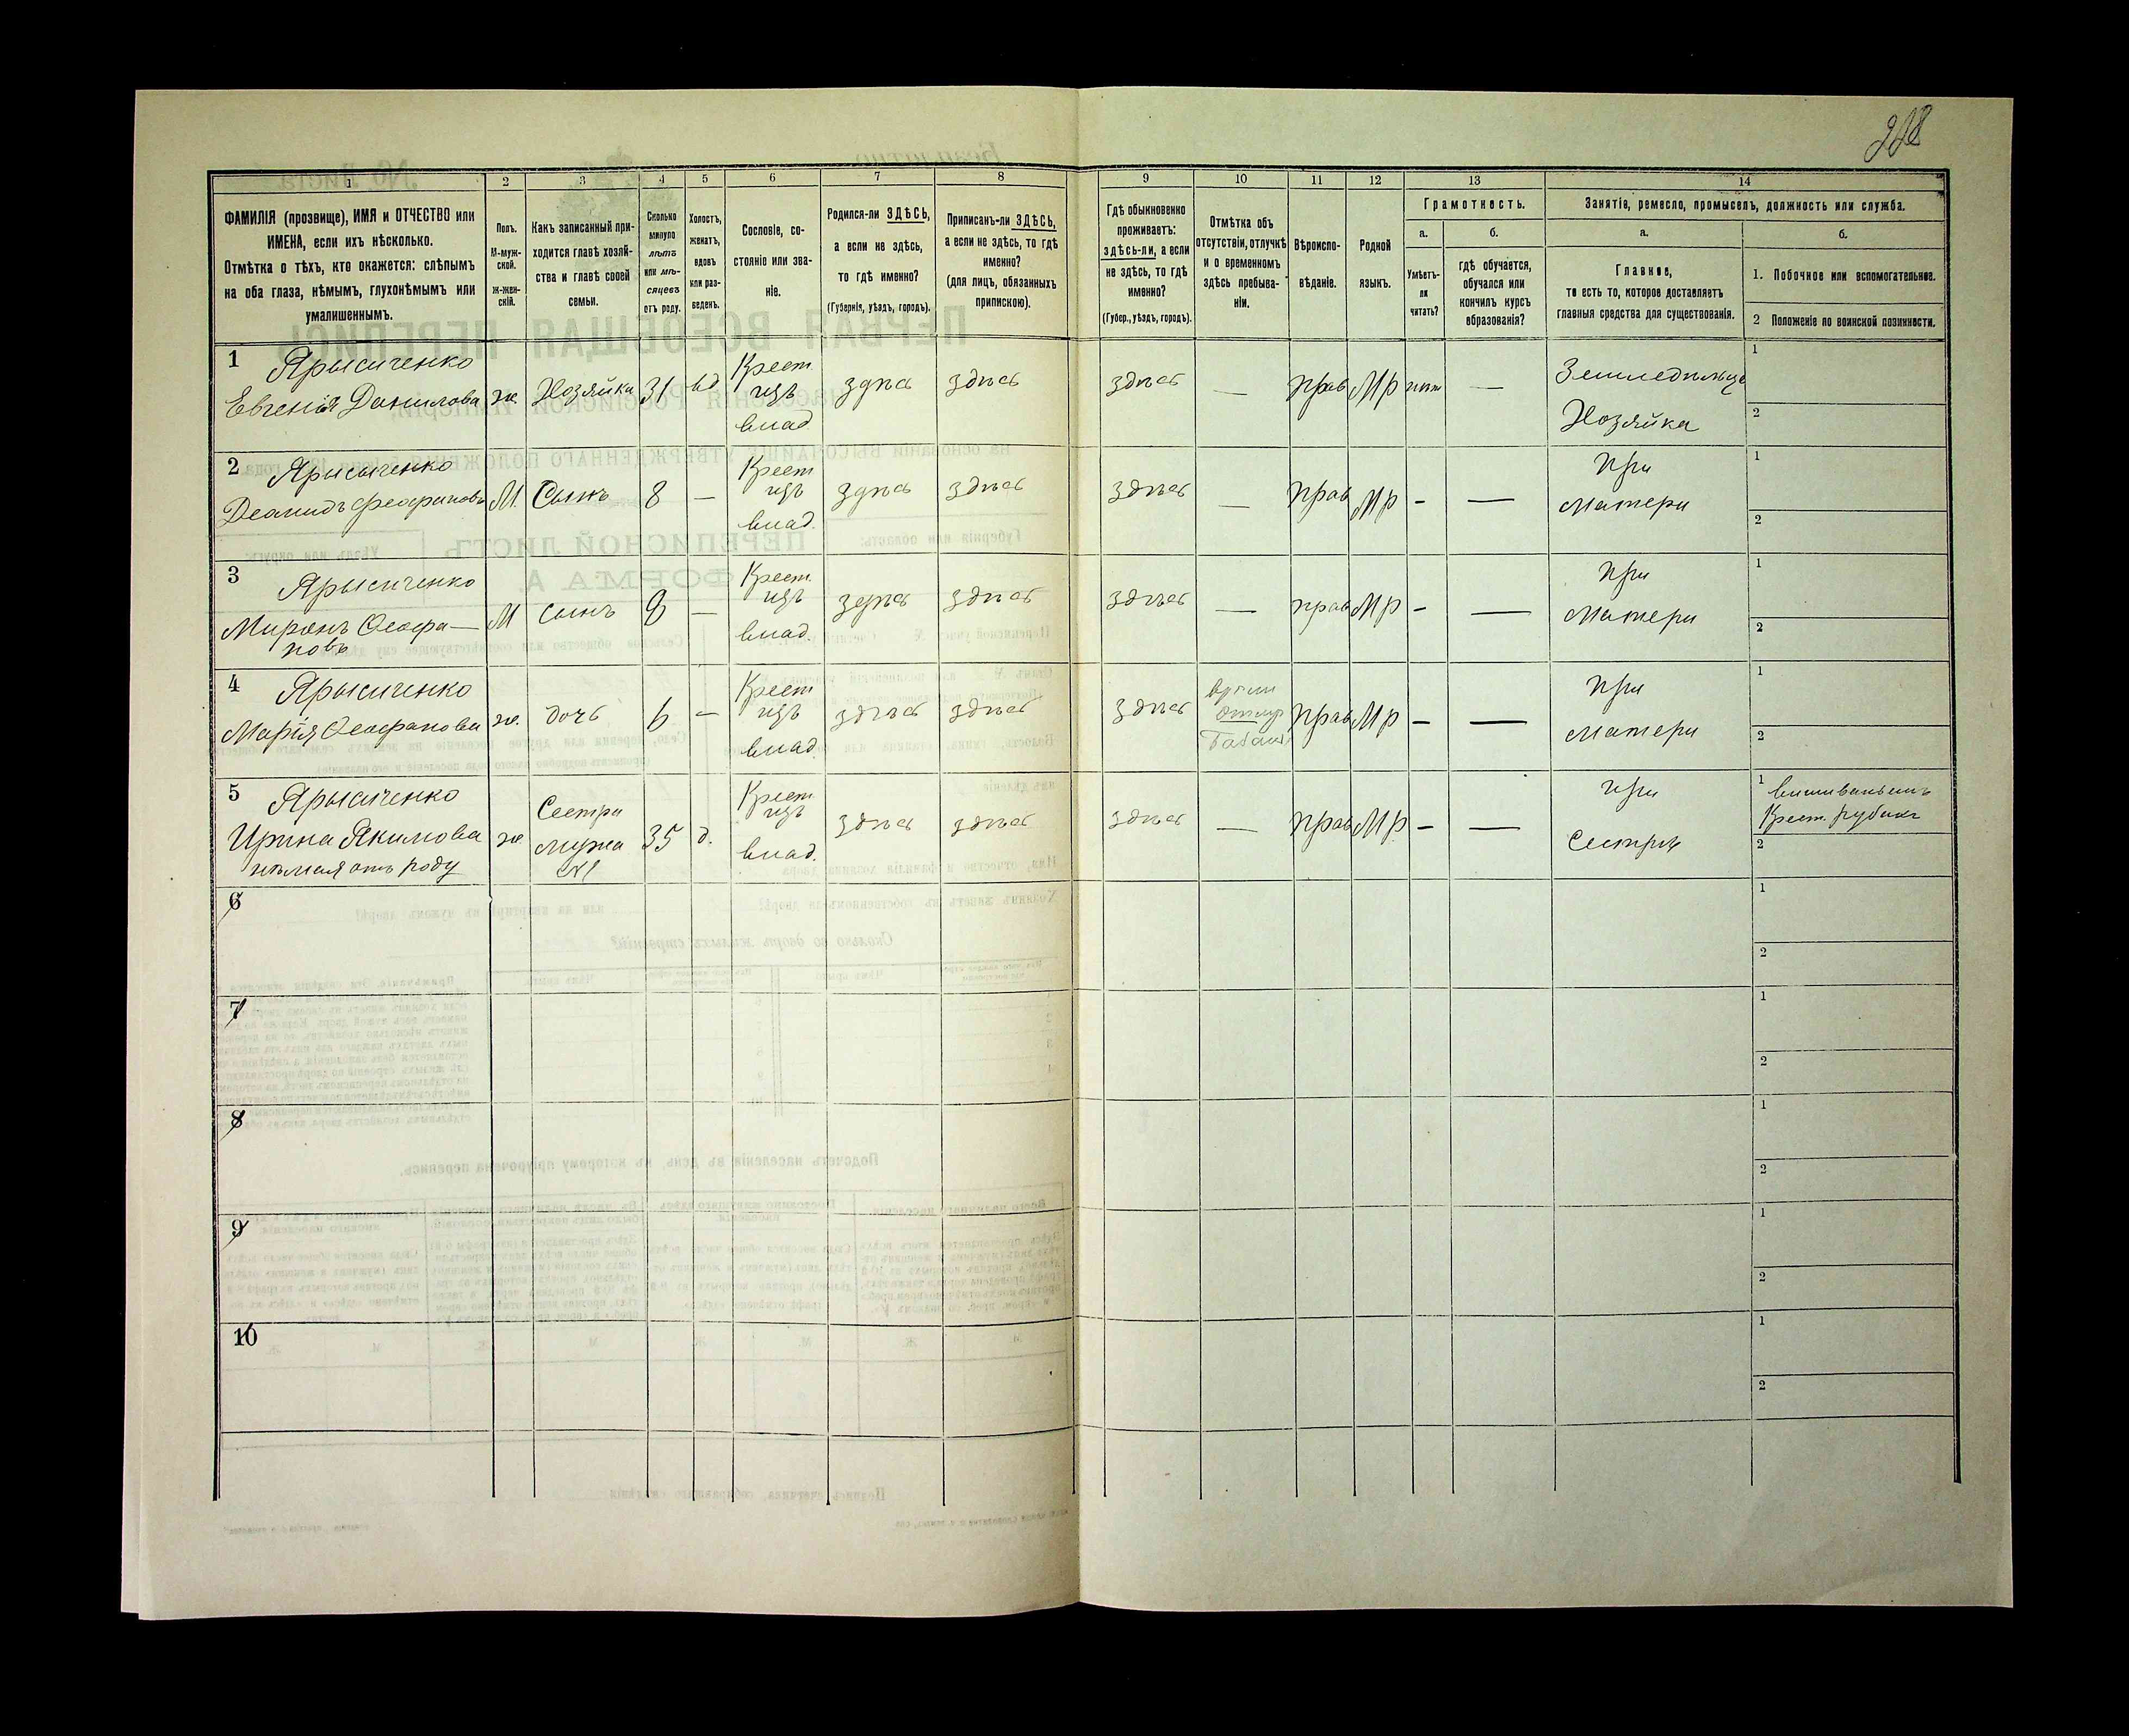 228
1
2
3
4
5
6
7
8
9
10
11
12
13
14
ФАМИЛІЯ (прозвище), ИМЯ и ОТЧЕСТВО или
ИМЕНА, если ихъ нѣсколько.
Отмѣтка о тѣхъ, кто окажется: слѣпымъ
на оба глаза, нѣмымъ, глухонѣмымъ или
умалишеннымъ.
Полъ.
М-муж-
ской.
ж-жен-
скій.
Какъ записанный при-
ходится главѣ хозяй-
ства и главѣ своей
семьи.
Сколько
минуло
лѣтъ
или мѣ-
сяцевъ
отъ роду.
Холостъ,
женатъ,
вдовъ
или раз-
веденъ.
Сословіе, со-
стояніе или зва-
ніе.
Родился-ли ЗДѢСЬ,
а если не здѣсь,
то гдѣ именно?
(Губернія, уѣздъ, городъ).
Приписанъ-ли ЗДѢСЬ,
а если не здѣсь, то гдѣ
именно?
(для лицъ, обязанныхъ
припискою).
Гдѣ обыкновенно
проживаетъ:
здѣсь-ли, а если
не здѣсь, то гдѣ
именно?
(Губер., уѣздъ, городъ).
Отмѣтка объ
отсутствіи, отлучкѣ
и о временномъ
здѣсь пребыва-
ніи.
Вѣроиспо-
вѣданіе.
Родной
языкъ.
Грамотность.
а.
Умѣетъ-
ли
читать?
б.
гдѣ обучается,
обучался или
кончилъ курсъ
образованія?
Занятіе, ремесло, промыселъ, должность или служба.
а.
Главное,
то есть то, которое доставляетъ
главныя средства для существованія.
б.
1. Побочное или вспомогательное.
2 Положеніе по воинской повинности.
1 Ярысиченко
Евгенія Данилова
ж.
Хозяйка
31
вд
Крест
изъ
влад.
здѣсь
здѣсь
здѣсь
—
Прав
Мр
нѣт
—
Земледѣлица
Хозяйка
1
2
2 Ярысиченко
Деомидъ Феофановъ
М.
Сынъ
8
—
Крест
изъ
влад.
здѣсь
здѣсь
здѣсь
—
Прав
Мр
-
—
При
Матери
1
2
3 Ярысиченко
Миронъ Ѳеофа—
новъ
М
сынъ
8
—
Крест.
изъ
влад.
здѣсь
здѣсь
здѣсь
—
прав
Мр
-
—
При
Матери
1
2
4 Ярысиченко
Марія Ѳеофанова
ж.
дочь
6
—
Крест
изъ
влад.
здѣсь
здѣсь
здѣсь
Прав
Мр
—
—
При
Матери
1
2
5 Ярысиченко
Ирина Якимова
нѣмая отъ роду
ж.
Сестра
мужа
№1
35
д.
Крест
изъ
влад.
здѣсь
здѣсь
здѣсь
—
Прав
Мр
-
—
При
Сестрѣ
1 вишиваньемъ
Крест. рубахъ
2
6
1
2
7
1
2
8
1
2
9
1
2
10
1
2